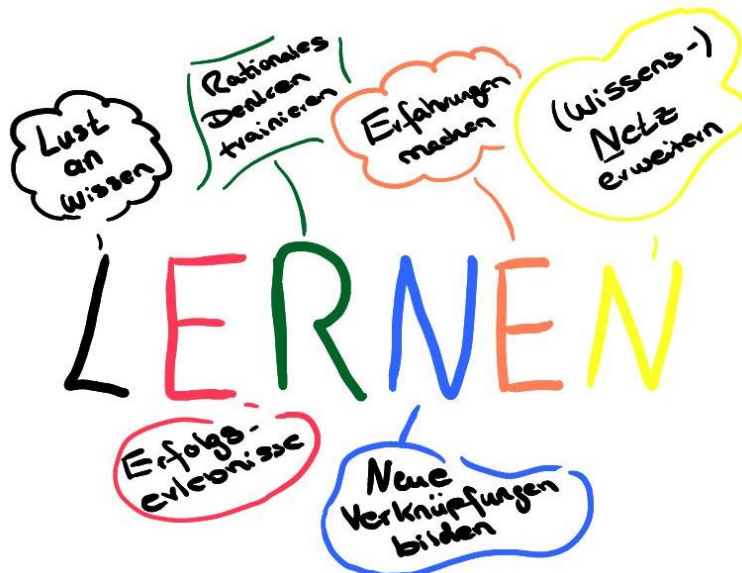 Lust
an
Wissen
Rationales
Denken
trainieren
Erfahrungen
machen
(Wissens-)
Netz
erweitern
LERNEN
Erfolgs-
erlebnisse
Neue
Verknüpfungen
bilden